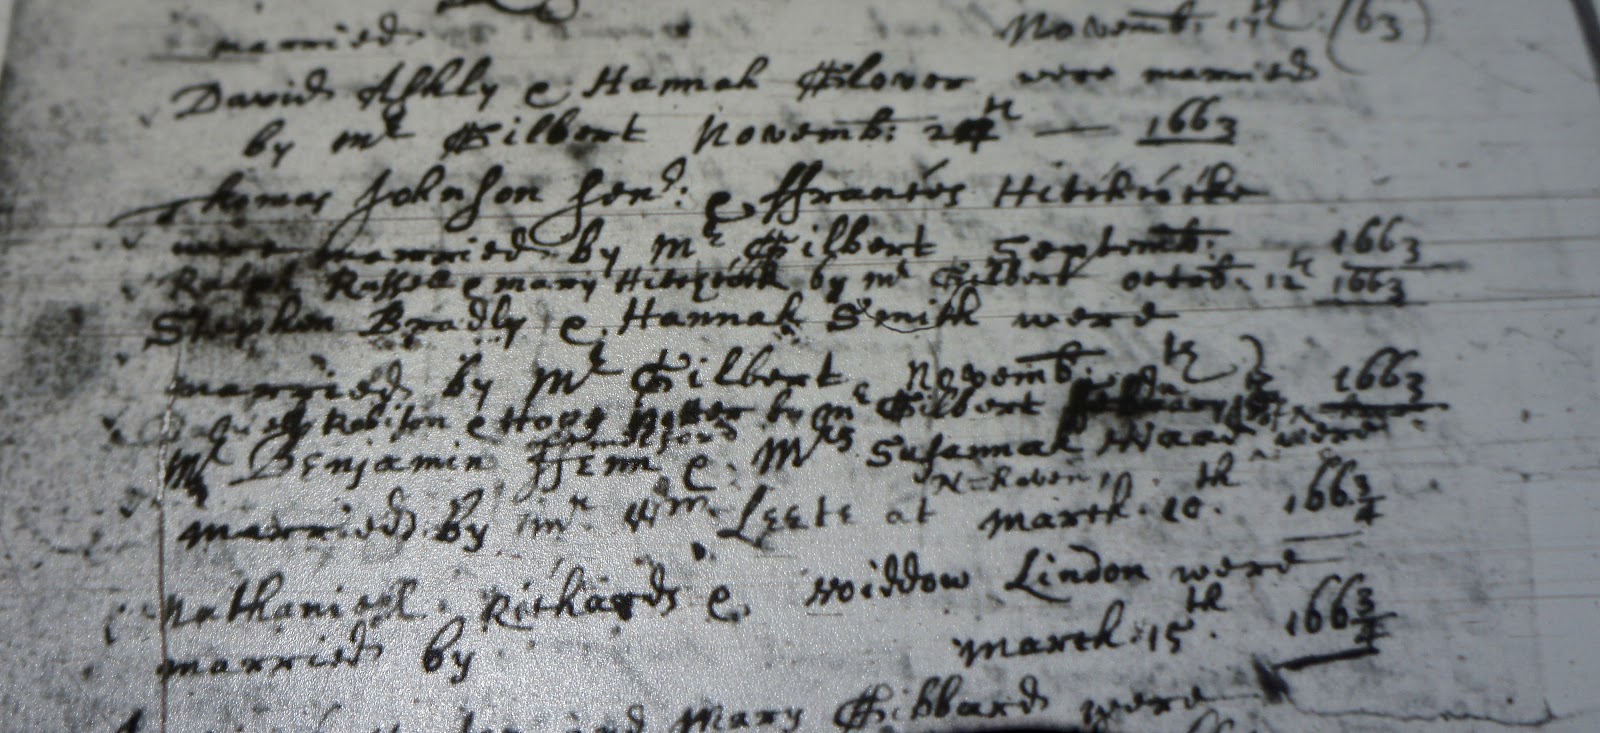 married Novemb: 17th (63)
David Ashly & Hannah Glover were married
by mr Gilbert Novemb: 24th — 1663
Thomas Johnson senr: & ffrances Hitchcocke
were married by Mr Gilbert Septemb: 1663
Ralph Russell & mary Hitchcock by mr Gilbert octob: 12th 1663
Stephen Bradly & Hannah Smith were
married by Mr Gilbert Novemb: th 1663
Robison & by mr Gilbert
Mr Benjamin ffenn & Mrs Susannah Waard were
N-haven
married by mr Wm Leete at march 10th 1663/4
Nathaniell Richards & widdow Lindon were
married by march 15th 1663/4
and Mary Gibbard were